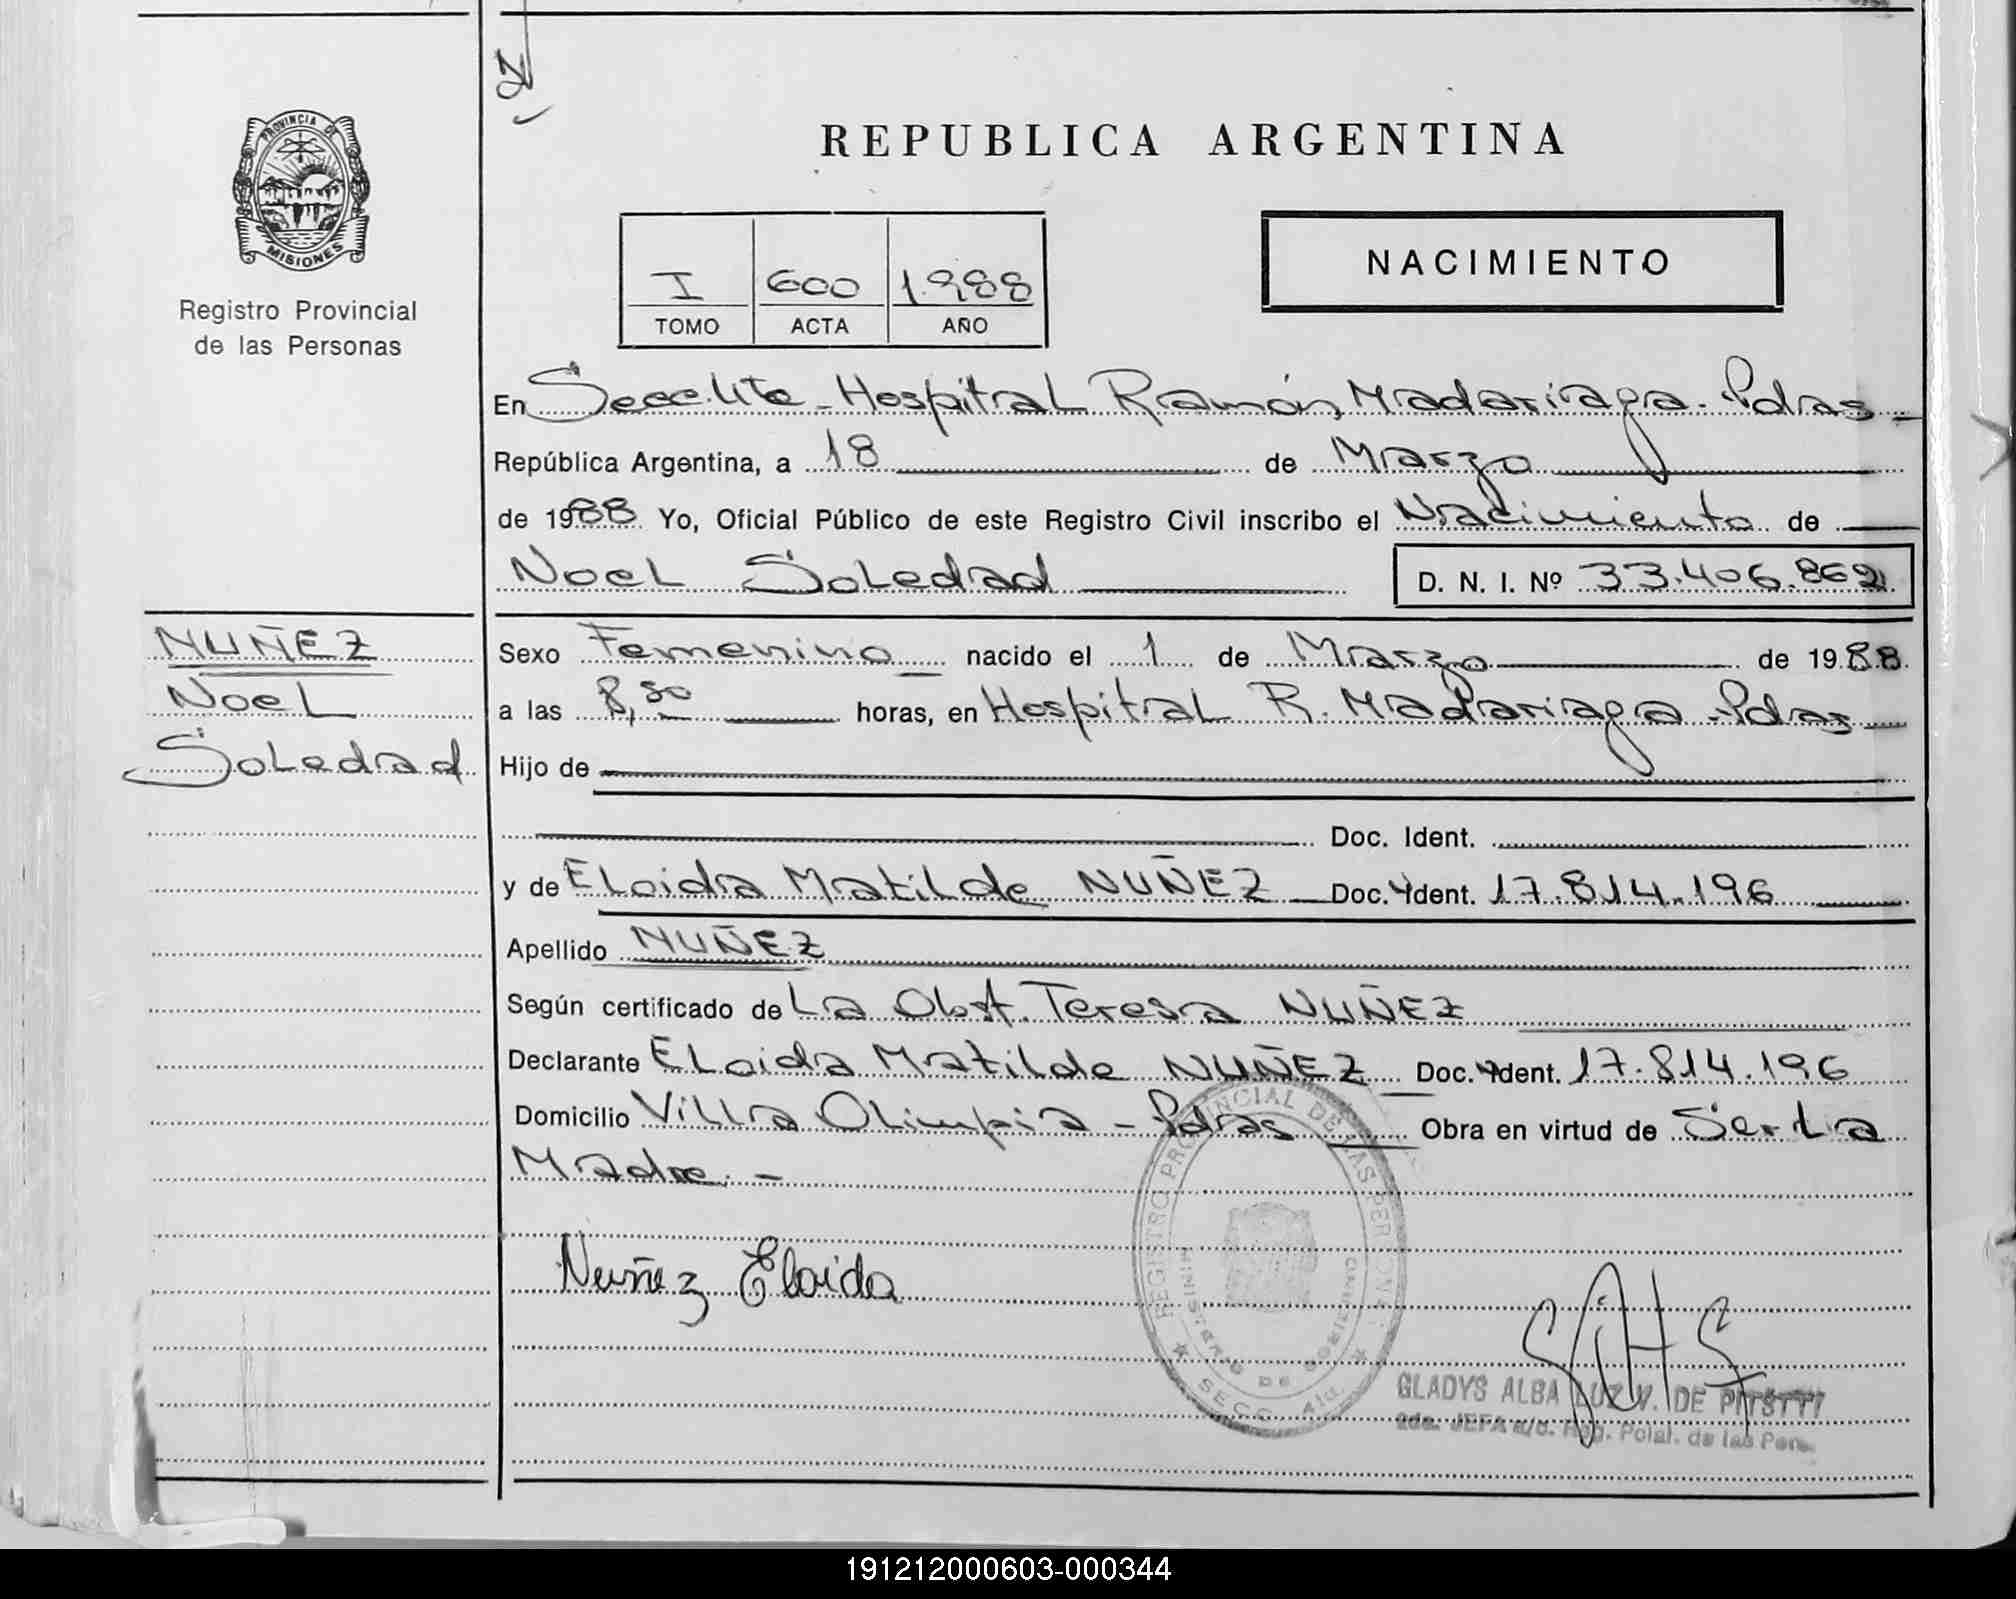 PROVINCIA DE
MISIONES
Registro Provincial
de las Personas
REPUBLICA ARGENTINA
I 600 1.988
TOMO ACTA AÑO
NACIMIENTO
En Secc. Hospital Ramón Madariaga - Pdas -
República Argentina, a 18 de Marzo
de 1988 Yo, Oficial Público de este Registro Civil inscribo el Nacimiento de
Noel Soledad
D. N. I. Nº 33.406.862
NUÑEZ
Noel
Soledad
Sexo Femenino nacido el 1 de Marzo de 1988
a las 8,50 horas, en Hospital R. Madariaga - Pdas
Hijo de
Doc. Ident.
y de Eloida Matilde NUÑEZ Doc. Ident. 17.814.196
Apellido NUÑEZ
Según certificado de La Obst. Teresa NUÑEZ
Declarante Eloida Matilde NUÑEZ Doc. Ident. 17.814.196
Domicilio Villa Olimpia - Pdas Obra en virtud de Ser La
Madre. -
Nuñez Eloida
REGISTRO PROVINCIAL DE LAS PERSONAS
MINISTERIO DE GOBIERNO
SECC. 4ta.
GLADYS ALBA LUZ V. DE
2da. JEFA a/c. Reg. Pcial. de las Pers.
191212000603-000344